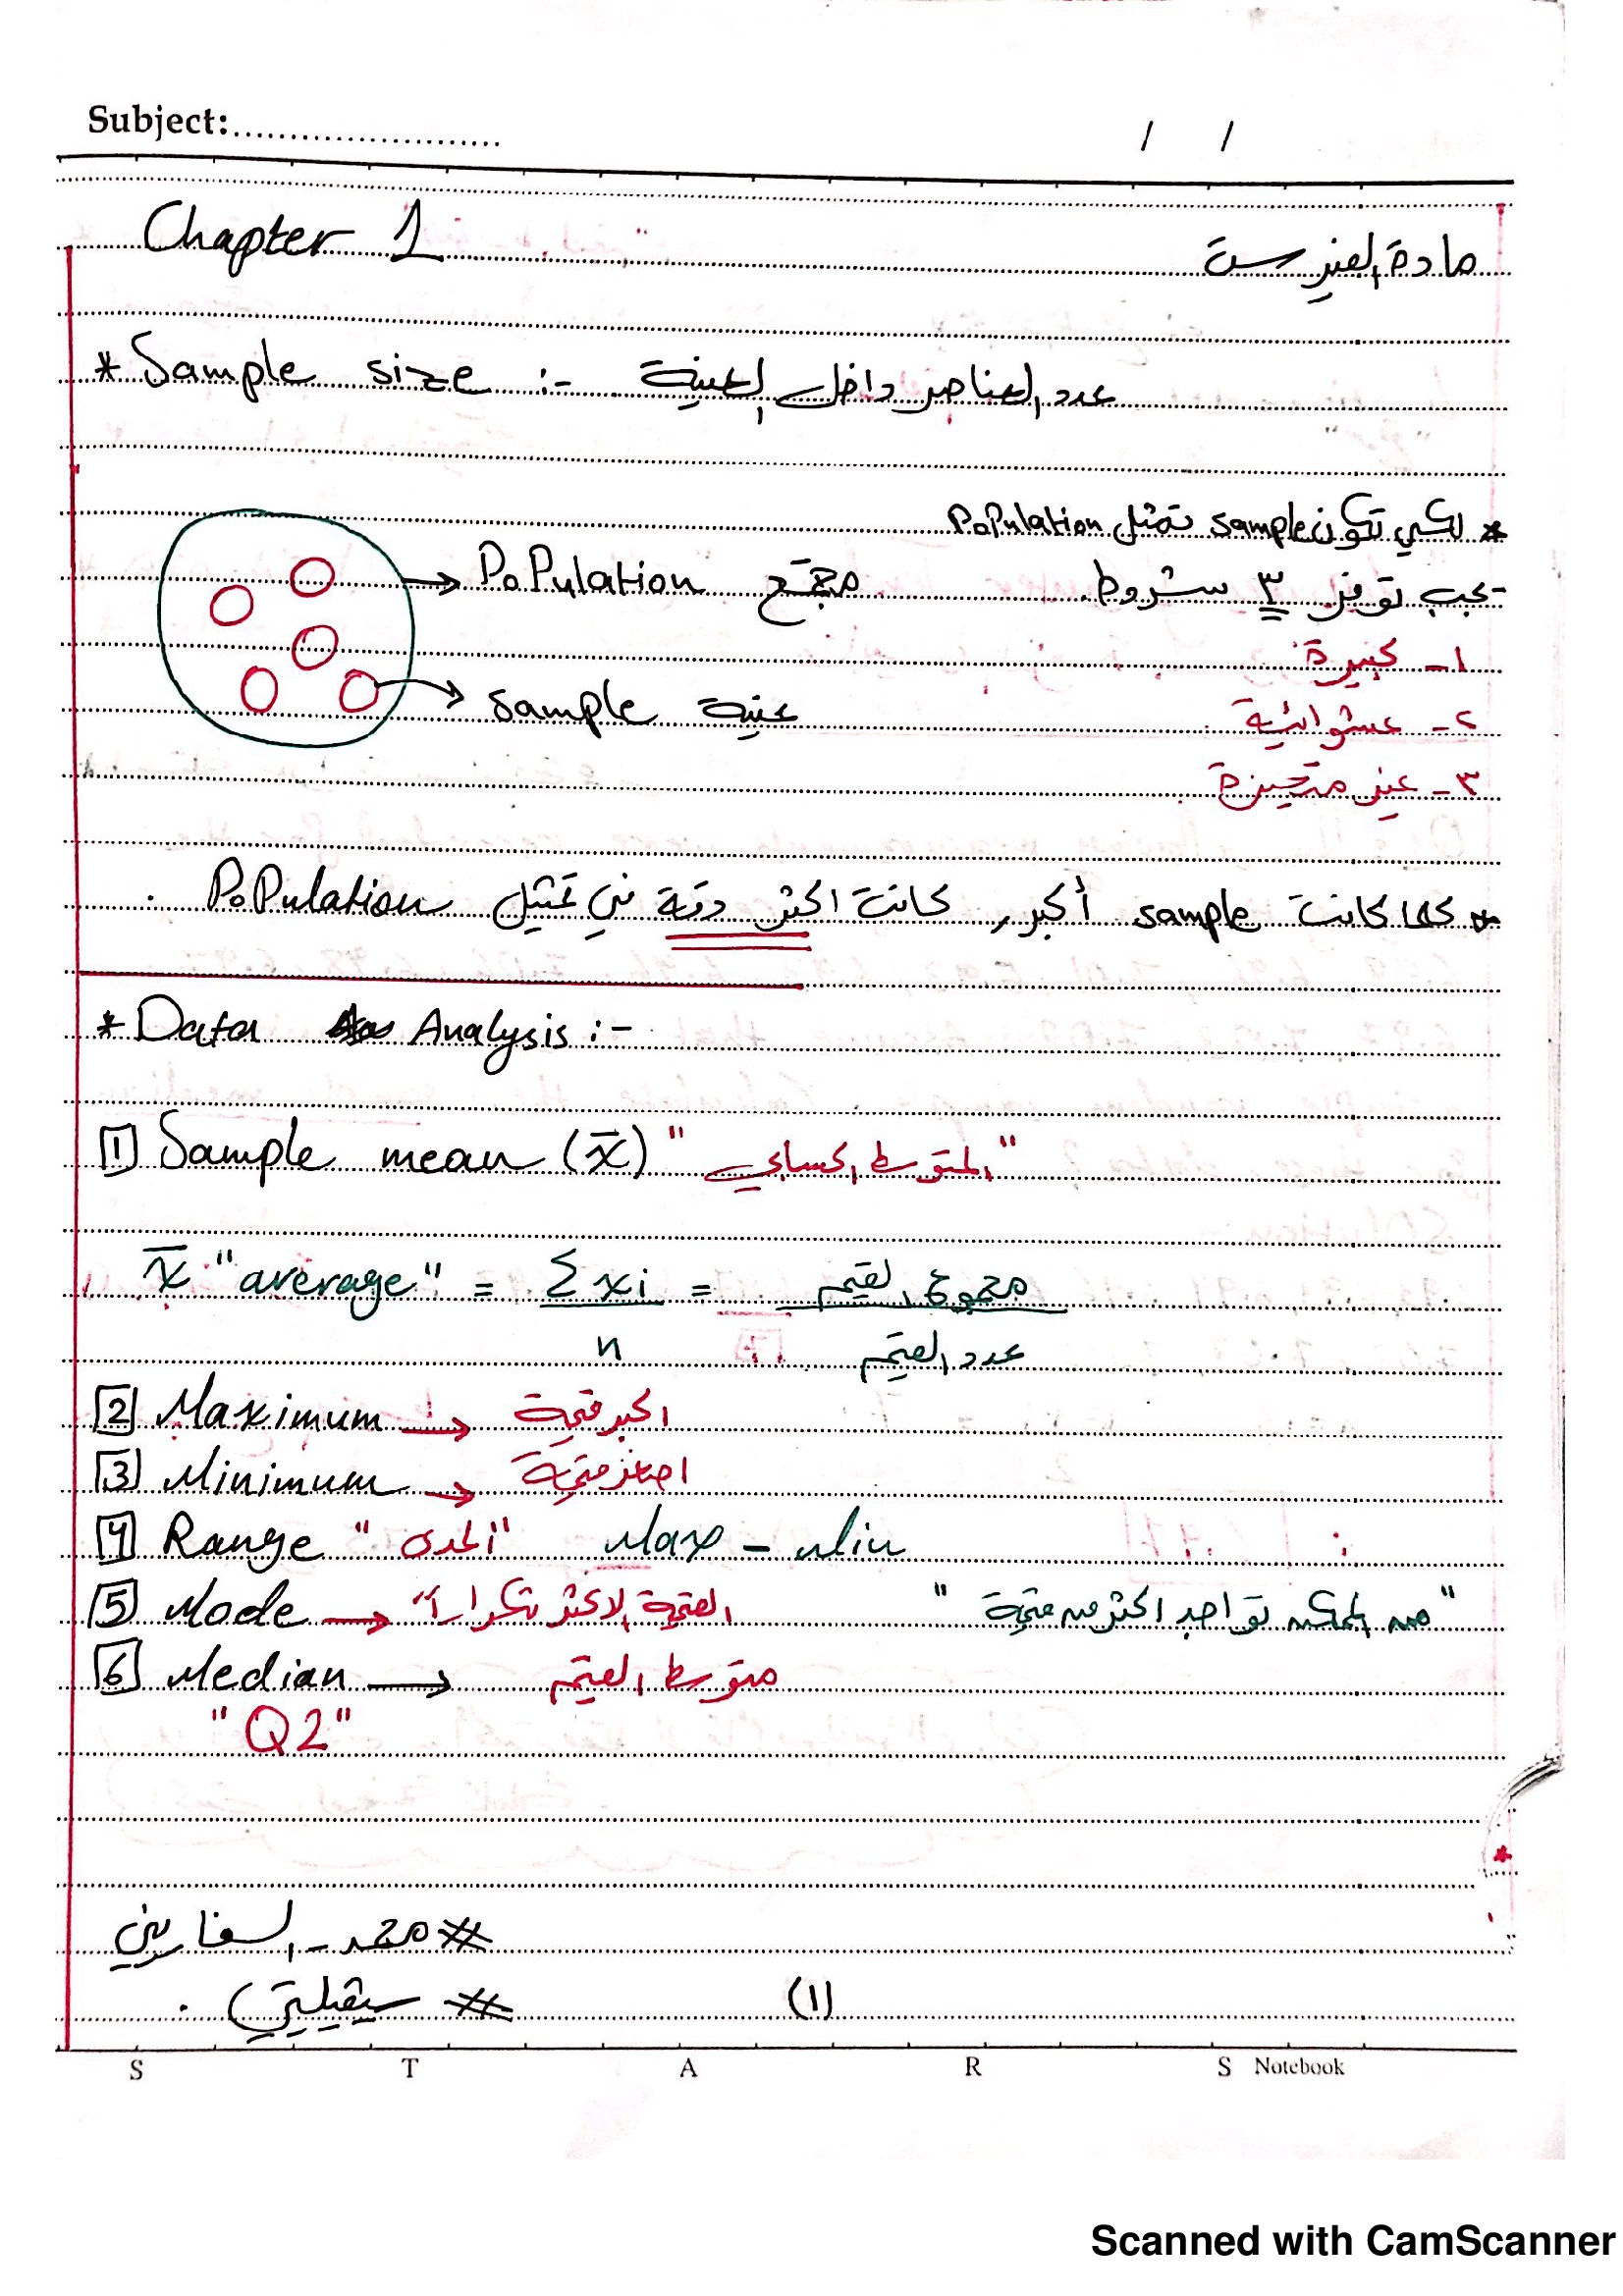 Subject:......................
/ /
Chapter 1
مادة الفيرست
* Sample size :- عدد العناصر داخل العينة
* لكي تكون sample تمثل Population
يجب توفر ٣ شروط
١- كبيرة
٢- عشوائية
٣- غير متحيزة
Population مجتمع
sample عينة
* كلما كانت sample أكبر, كانت اكثر دقة في تمثيل Population .
* Data Analysis :-
1 Sample mean (x̄) "المتوسط الحسابي"
x̄ "average" = Σxi / n = مجموع القيم / عدد القيم
2 Maximum → اكبر قيمة
3 Minimum → اصغر قيمة
4 Range "المدى" Max - Min
5 Mode → القيمة الاكثر تكرارا "من الممكن تواجد اكثر من قيمة"
6 Median → متوسط القيم
"Q2"
# محمد - السفاريني
#
(1)
S T A R S Notebook
Scanned with CamScanner